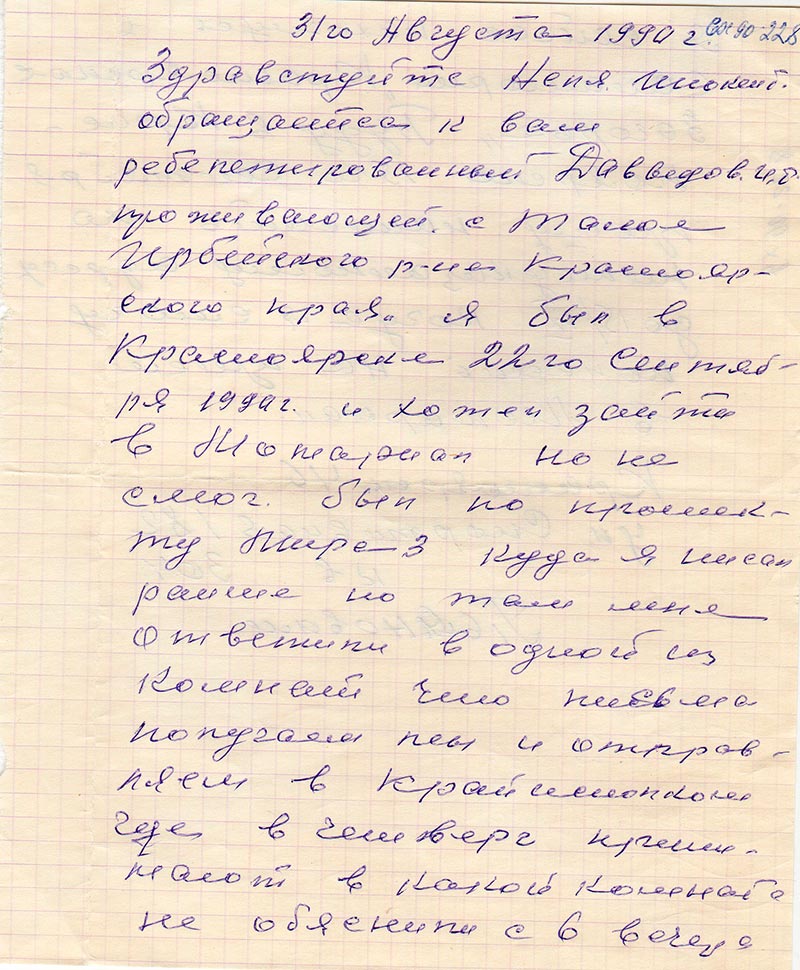 31го Августа 1990 г. Вх 90-228
Здравствуйте Неля.
обращается к вам
ребелетированный Давыдов. И,О.
проживающей. с Талое
Ирбейского р-на Краснояр-
ского края. я был в
Красноярске 22го Сентяб-
ря 1990г. и хотел зайти
в Мемориал но не
смог. был по проспек-
ту Мира-3 куда я писал
раньше но там мне
ответили в одной из
комнат что письма
получаем мы и отправ-
ляем в Крайисполком
где в четверг прини-
мают в какой комнате
не обяснили с 6 вечера